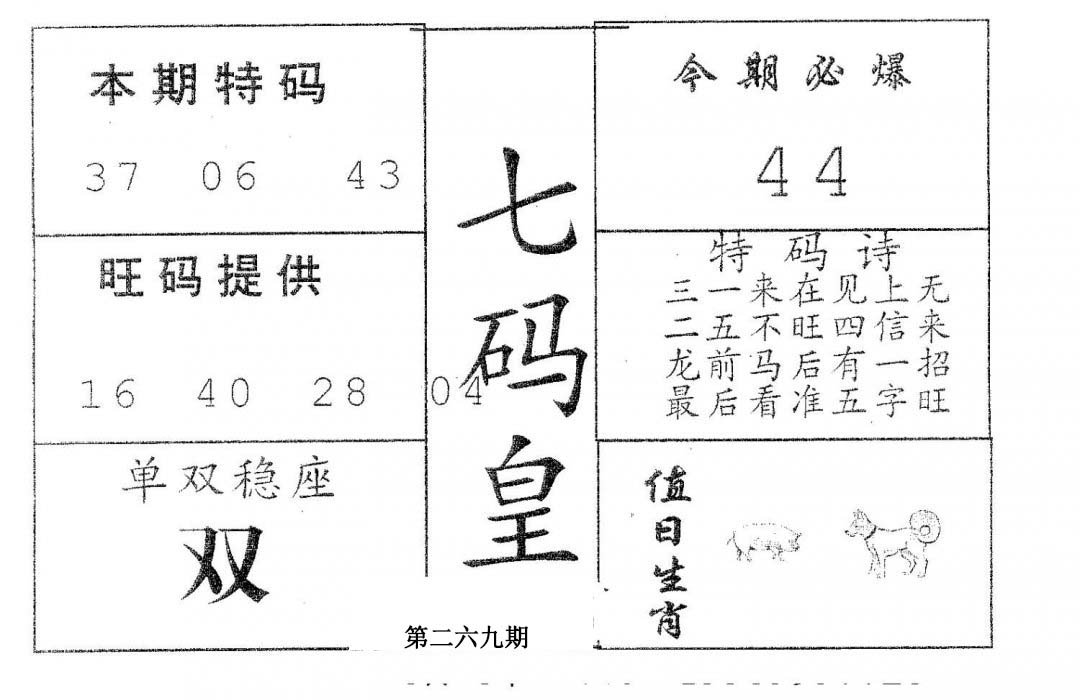 本期特码
37 06 43
旺码提供
16 40 28 04
单双稳座
双
七码皇
第二六九期
今期必爆
44
特码诗
三一来在见上无
二五不旺四信来
龙前马后有一招
最后看准五字旺
值日生肖